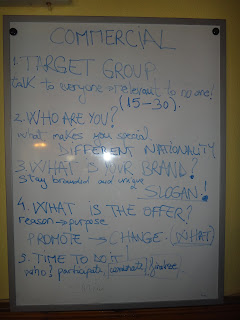 COMMERCIAL
1. TARGET GROUP
talk to everyone = relevant to no one!
(15-30).
2. WHO ARE YOU?
what makes you special
DIFFERENT NATIONALITY
3. WHAT IS YOUR BRAND?
stay branded and unique
SLOGAN!
4. WHAT IS THE OFFER?
reason → purpose
PROMOTE → CHANGE. (WHAT)
TIME TO DO IT!
who? participate,